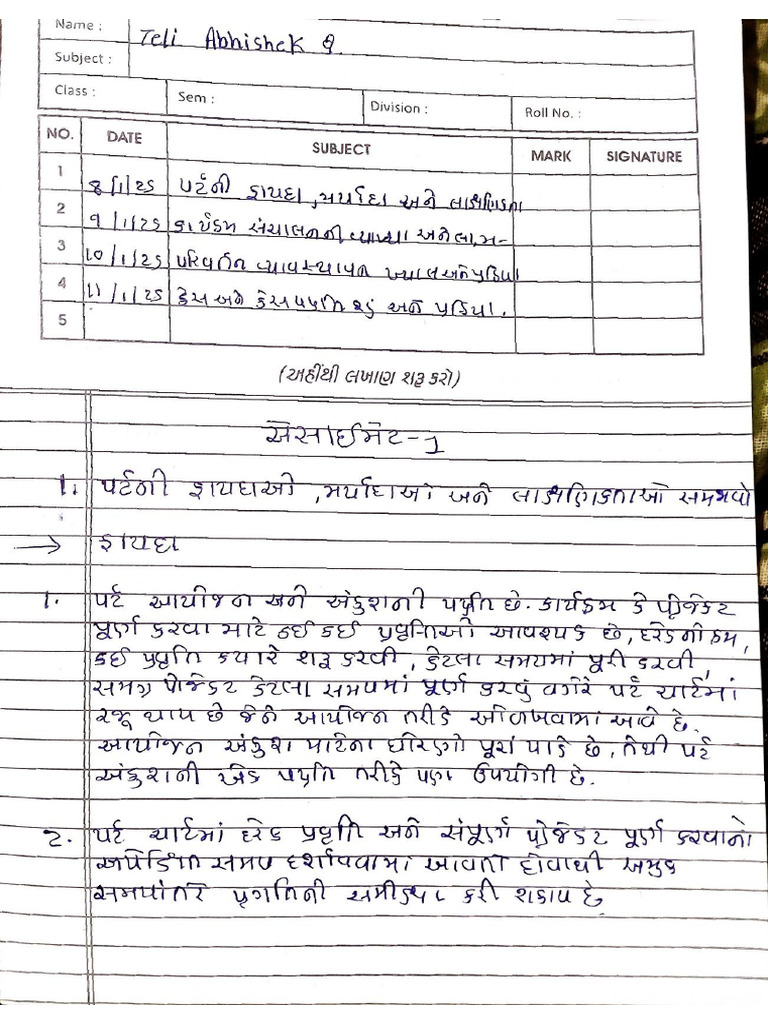 Name : Teli Abhishek Q.
Subject :
Class : Sem : Division : Roll No. :
NO. DATE SUBJECT MARK SIGNATURE
1 8/1/25 પર્ટની ફાયદા, મર્યાદા અને લાક્ષણિકતા
2 9/1/25 કાર્યક્રમ સંચાલનની વ્યાખ્યા અને લા,મ-
3 10/1/25 પરિવર્તન વ્યાવસ્થાપન ખ્યાલ અને પ્રક્રિયા
4 11/1/25 કેસ અને કેસ પધ્ધતિ શું અને પ્રક્રિયા.
5
(અહીંથી લખાણ શરૂ કરો)
એસાઈમેટ-1
1. પર્ટની ફાયદાઓ, મર્યાદાઓ અને લાક્ષણિકતાઓ સમજાવો
→ ફાયદા
1. પર્ટ આયોજન અને અંકુશની પધ્ધતિ છે. કાર્યક્રમ કે પ્રોજેકટ
પૂર્ણ કરવા માટે કઈ કઈ પ્રવૃત્તિઓ આવશ્યક છે, દરેકનો ક્રમ,
કઈ પ્રવૃત્તિ કયારે શરૂ કરવી, કેટલા સમયમાં પૂરી કરવી,
સમગ્ર પ્રોજેકટ કેટલા સમયમાં પૂર્ણ કરવું વગેરે પર્ટ ચાર્ટમાં
રજૂ થાય છે જેને આયોજન તરીકે ઓળખવામાં આવે છે.
આયોજન અંકુશ માટેના ધોરણો પૂરાં પાડે છે, તેથી પર્ટ
અંકુશની એક પધ્ધતિ તરીકે પણ ઉપયોગી છે.
2. પર્ટ ચાર્ટમાં દરેક પ્રવૃત્તિ અને સંપૂર્ણ પ્રોજેકટ પૂર્ણ કરવાનો
અપેક્ષિત સમય દર્શાવવામાં આવતો હોવાથી અમુક
સમયાંતરે પ્રગતિની સમીક્ષા કરી શકાય છે.